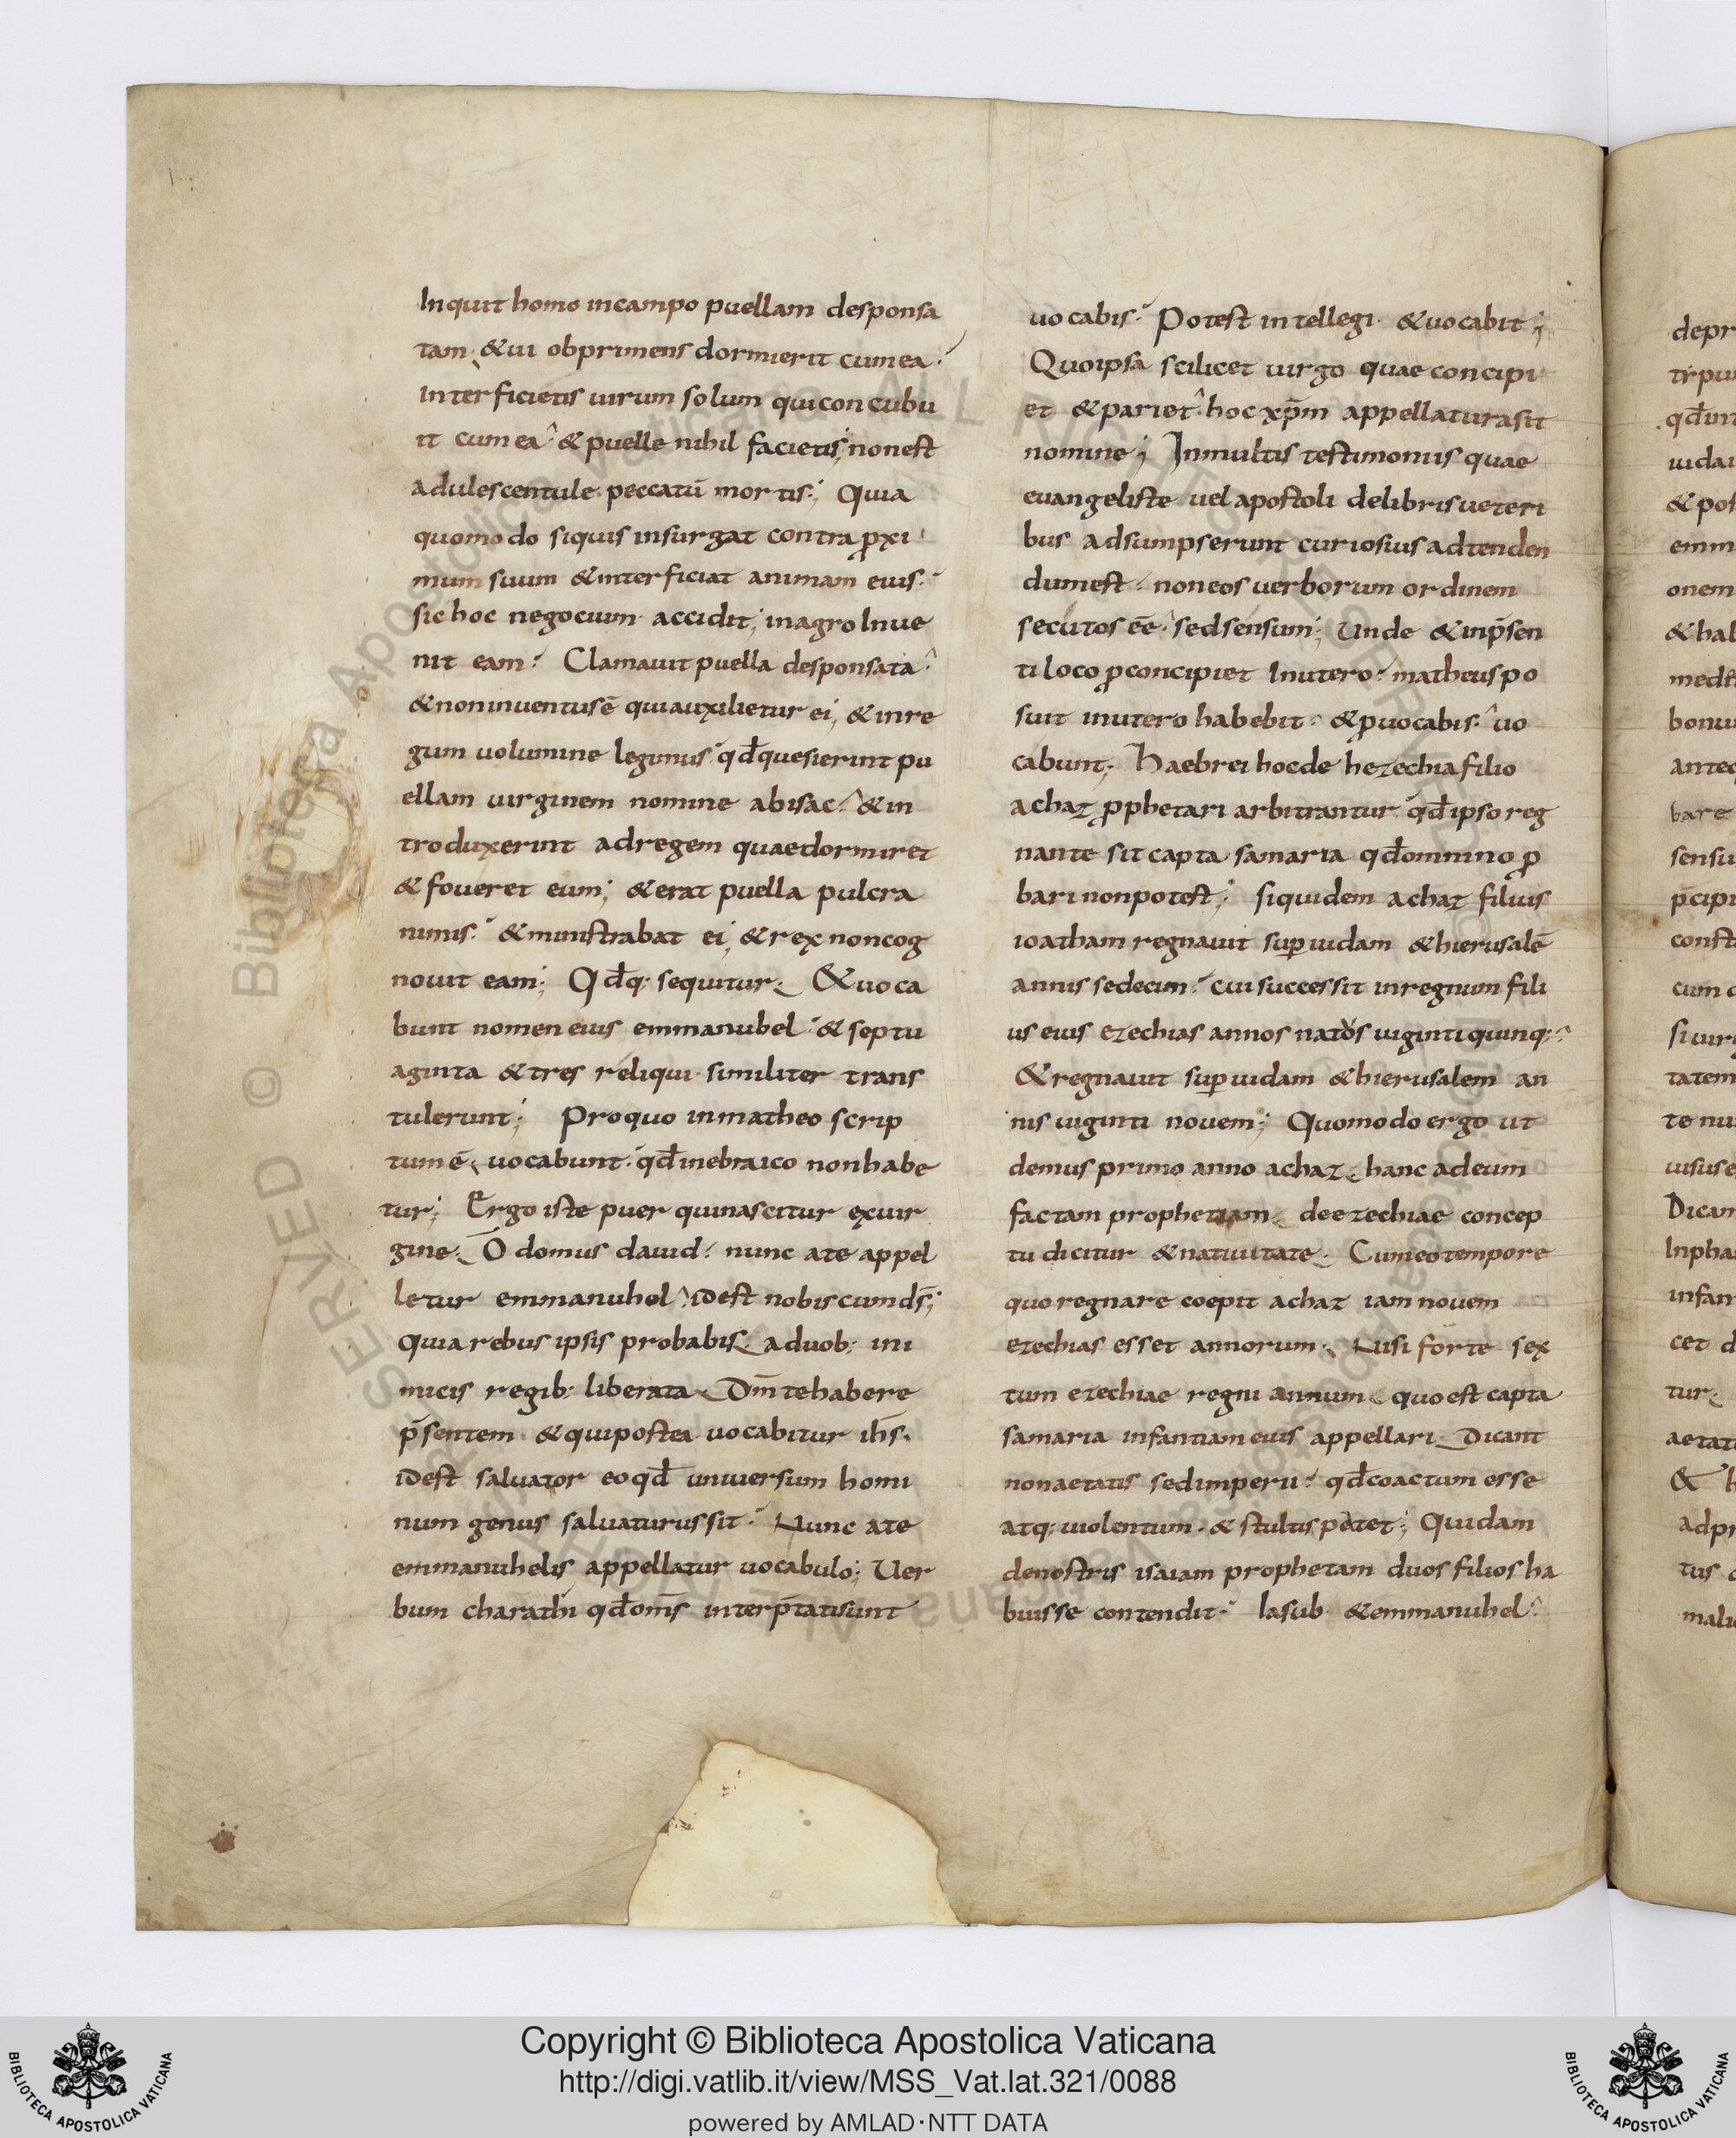 Inquit homo incampo puellam desponsa
tam. &ui obprimens dormierit cumea.
Interficietis uirum solum quiconcubu
it cumea. & puelle nihil facietis; nonest
adulescentule peccatū mortis; Quia
quomodo siquis insurgat contra ꝓxi
mum suum &interficiat animam eius.
sic hoc negocium accidit; inagro Inue
nit eam. Clamauit puella desponsata.
&noninuentusē quiauxilietur ei; &inre
gum uolumine legimus. qđquesierint pu
ellam uirginem nomine abisac. &in
troduxerint adregem quaedormiret
&foueret eum; &erat puella pulcra
nimis. &ministrabat ei; &rex noncog
nouit eam; Qđq: sequitur. &uoca
bunt nomen eius emmanuhel. &septu
aginta &tres reliqui similiter trans
tulerunt; Proquo inmatheo scrip
tumē. uocabunt. qđinebraico nonhabe
tur; Ergo iste puer quinascitur exuir
gine. O domus dauid. nunc ate appel
letur emmanuhel. idest nobiscum ds̄;
Quia rebus ipsis probabis. aduob: ini
micis regib: liberata. Dm̄ tehabere
p̄sentem. &quipostea uocabitur ihs̄.
idest saluator eo qđ uniuersum homi
num genus saluaturussit. Nunc ate
emmanuhelis appellatur uocabulo; Uer
bum charathi qđom̄s interp̄tatisunt
uocabis. Potest intellegi. &uocabit;
Quoipsa scilicet uirgo quae concipi
et &pariet. hoc xp̄m appellaturasit
nomine; Inmultis testimoniis quae
euangeliste uel apostoli delibrisueteri
bus adsumpserunt curiosius adtenden
dumest. noneos uerborum ordinem
secutos ēē. sedsensum; Unde &inp̄sen
ti loco ꝓconcipiet Inutero. matheus po
suit inutero habebit. &ꝓuocabis. uo
cabunt; Haebrei hocde hezechia filio
achaz ꝓphetari arbitrantur qđipso reg
nante sit capta samaria qđomnino ꝓ
bari nonpotest; siquidem achaz filius
ioatham regnauit suꝑiudam &hierusalē
annis sedecim. cui successit inregnum fili
us eius ezechias annos natos uigintiquinq:
&regnauit suꝑiudam &hierusalem an
nis uiginti nouem; Quomodo ergo ut
demus primo anno achaz. hanc adeum
factam prophetiam. deezechiae concep
tu dicitur &natiuitate. Cumeotempore
quo regnare coepit achaz iam nouem
ezechias esset annorum. Nisi forte sex
tum ezechiae regni annum. quo est capta
samaria infantiam eius appellari. Dicant
nonaetatis sedimperii. qđcoactum esse
atq: uiolentum. &stultis pètet; Quidam
denostris isaiam prophetam duos filios ha
buisse contendit. Iasub &emmanuhel.
depr
&pos
emm
onem
&hab
bonu
bare
sensu
p̄cipi
const
cum
tatem
Dican
infan
cet d
tur.
aetat
Copyright © Biblioteca Apostolica Vaticana
http://digi.vatlib.it/view/MSS_Vat.lat.321/0088
powered by AMLAD·NTT DATA
BIBLIOTECA APOSTOLICA VATICANA
BIBLIOTECA APOSTOLICA VATICANA